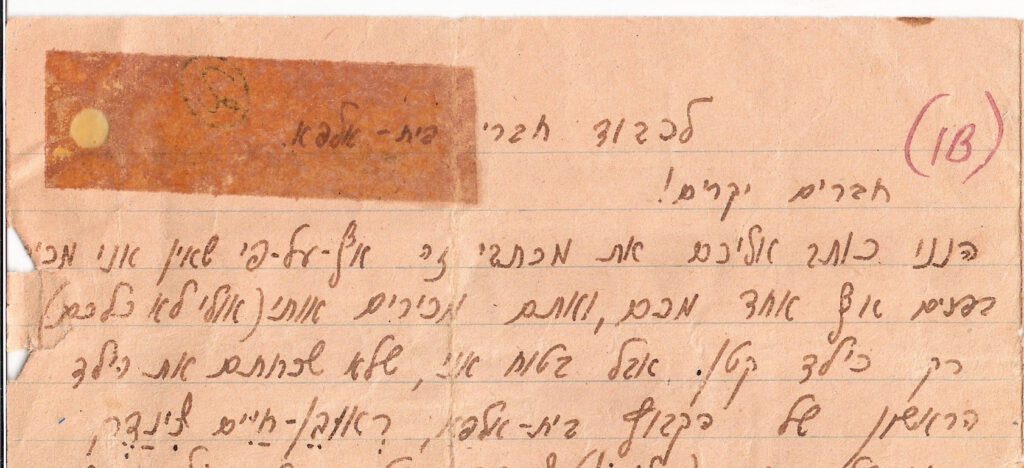 (1B)
לכבוד חברי בית-אלפא.
חברים יקרים!
הנני כותב אליכם את מכתבי זה אף-על-פי שאין אני
בפנים אף אחד מכם, ואתם מכירים אותי (אולי לא כלכם)
רק כילד קטן. אבל בטוח אני, שלא שכחתם את הילד
הראשון של הקבוץ בית-אלפא, רְאוּבֵן-חַיִּים